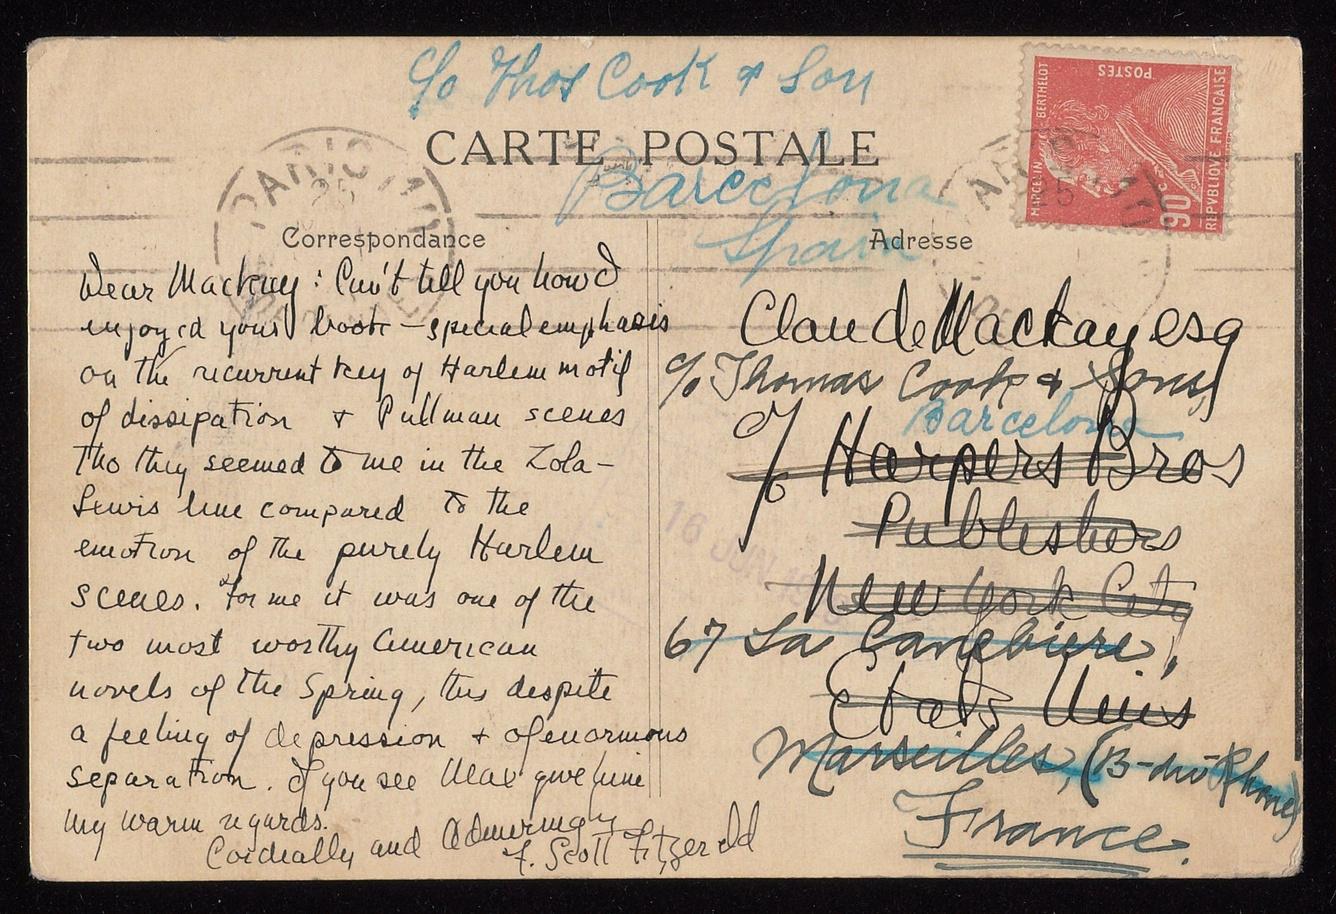 c/o Thos Cook & Son
CARTE POSTALE
Barcelona
Spain
MARCELIN BERTHELOT
POSTES
90c
REPVBLIQVE FRANCAISE
PARIS
25
Correspondance
Adresse
Dear Mackay: Can't tell you how I
enjoyed your book — special emphasis
on the recurrent key of Harlem motif
of dissipation & Pullman scenes
Tho they seemed to me in the Zola-
Lewis line compared to the
emotion of the purely Harlem
scenes. For me it was one of the
two most worthy American
novels of the Spring, this despite
a feeling of depression + of enormous
separation. If you see Max give him
my warm regards.
Cordially and Admiringly
F. Scott Fitzgerald
Claude Mackay esq
c/o Thomas Cook & Sons,
Barcelona
c/o Harpers Bros
Publishers
New York City
16 JUN 19
67 La Canebiere,
Etats Unis
Marseilles, (B-du-Rhone)
France.